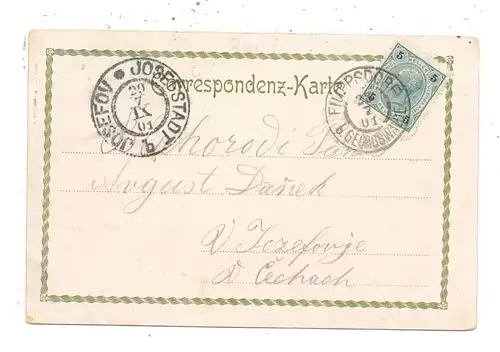 Correspondenz-Karte
JOSEFSTADT JOSEFOV
29
IX
01
FILIPPSDORF
b. GEORGSWALDE
01
5 HELLER 5
5 5
August Daněk
v Jozefovje
v Čechach